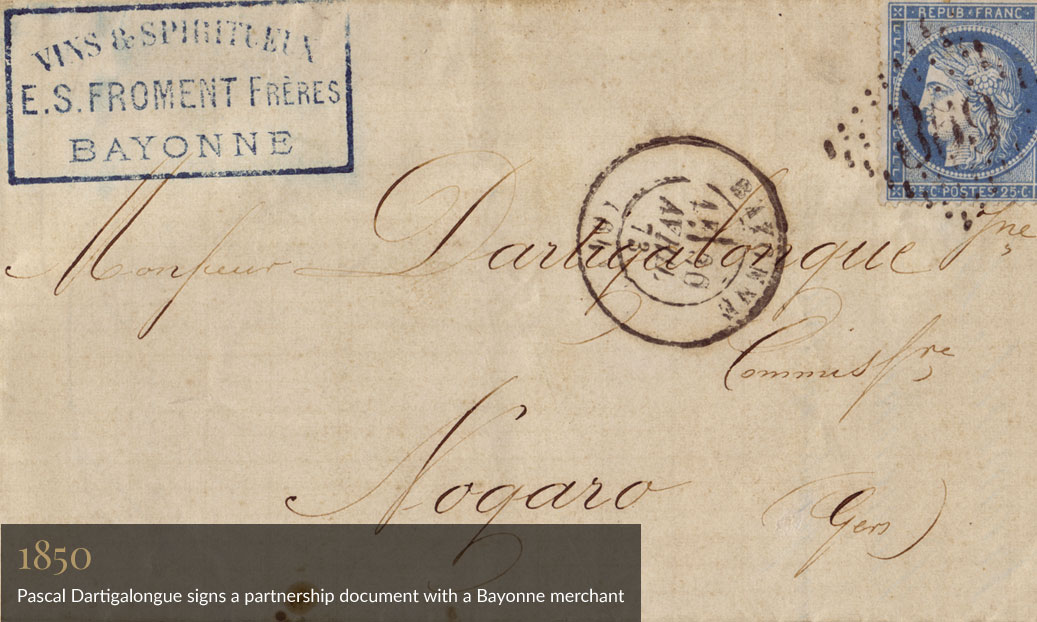 VINS & SPIRITUEUX
E.S. FROMENT FRÈRES
BAYONNE
REPUB·FRANC·
25·C·POSTES·25·C·
BAYONNE
AVRIL
73
(64)
Monsieur Dartigalongue Jne
Commissre
Nogaro (Gers)
1850
Pascal Dartigalongue signs a partnership document with a Bayonne merchant